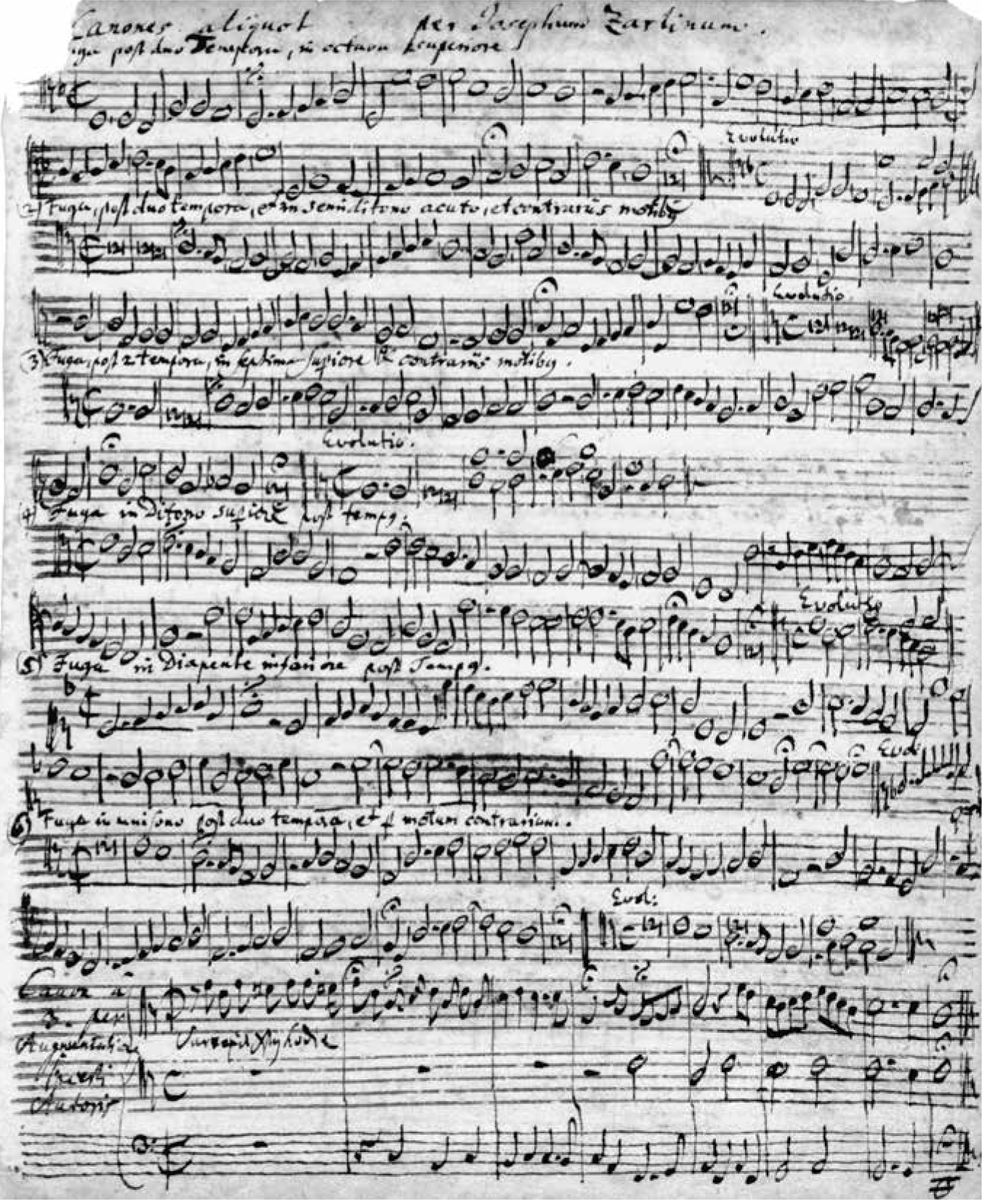 Canones aliquot per Josephum Zarlinum.
post duo Tempora, in octava superiore
Evolutio
2) Fuga, post duo tempora, et in semiditono acuto, et contrariis motib9
Evolutio.
3) Fuga, post 2 tempora, in septima supiore contrariis motib9.
Evolutio.
4) Fuga in Ditono supiore post temp9.
Evolutio
5) Fuga in Diapente inferiore post Temp9.
Evol:
6) Fuga in unisono post duo tempora, et motum contrarium.
Evol:
Canon à
3. per
Augmentatione
Incerti
Autoris